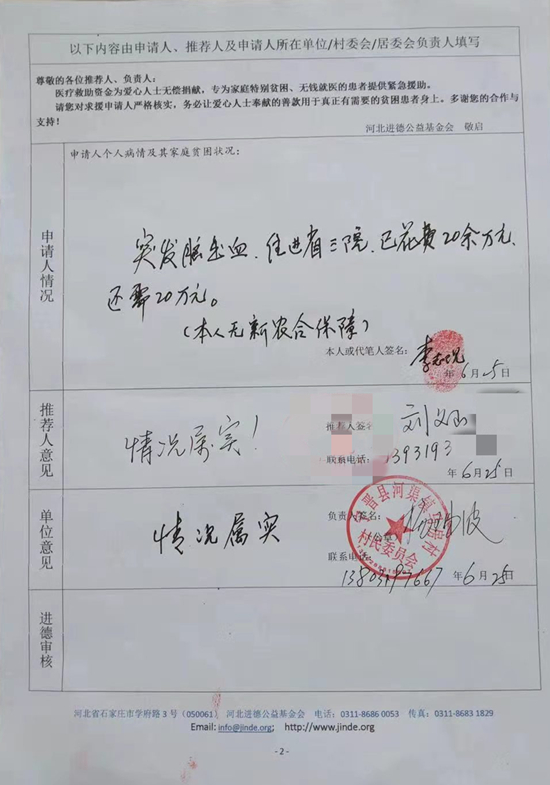 以下内容由申请人、推荐人及申请人所在单位/村委会/居委会负责人填写
尊敬的各位推荐人、负责人：
医疗救助资金为爱心人士无偿捐献，专为家庭特别贫困、无钱就医的患者提供紧急援助。
请您对求援申请人严格核实，务必让爱心人士奉献的善款用于真正有需要的贫困患者身上。多谢您的合作与
支持！
河北进德公益基金会 敬启
申请人情况
申请人个人病情及其家庭贫困状况：
突发脑出血、住进省三院、已花费20余万元、
还需20万元。
（本人无新农合保障）
本人或代笔人签名：
年6月25日
推荐人意见
情况属实！
推荐人签名
联系电话：139319
年6月25日
单位意见
情况属实
负责人签名：
村民委员会
联系电话：
年6月25日
进德审核
河北省石家庄市学府路3号（050061） 河北进德公益基金会 电话：0311-8686 0053 传真：0311-8683 1829
Email: info@jinde.org; http://www.jinde.org
- 2 -